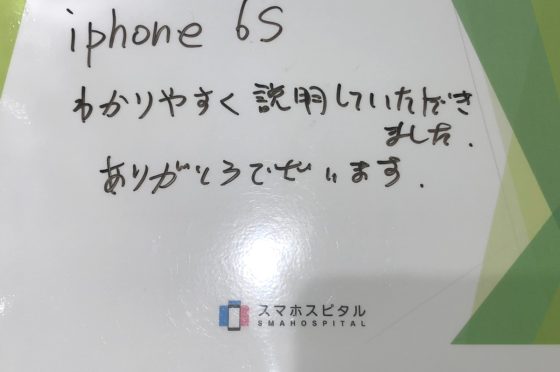 iphone 6S
わかりやすく説明していただき
ました.
ありがとうございます.
スマホスピタル
SMAHOSPITAL